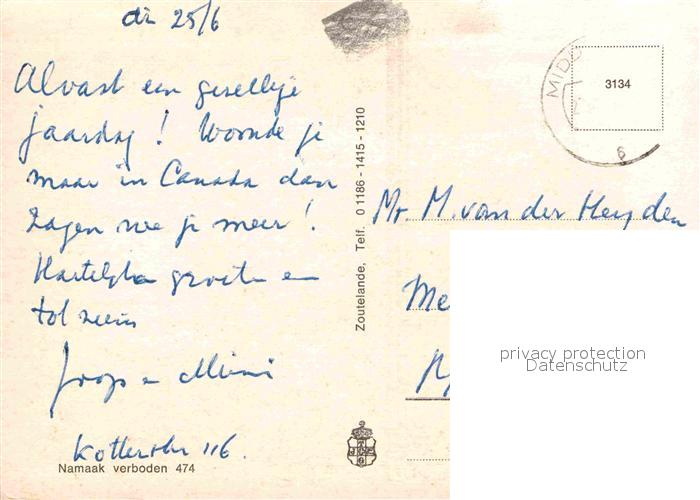 di 25/6
Alvast een gezellige
jaardag! Woonde je
maar in Canada dan
zagen we je meer!
Hartelijke groeten en
tot ziens
Joop en Mimi
116.
Namaak verboden 474
Zoutelande, Telf. 01186-1415-1210
MIDD
6
3134
Mr. M. van der Heyden
Me
privacy protection
Datenschutz